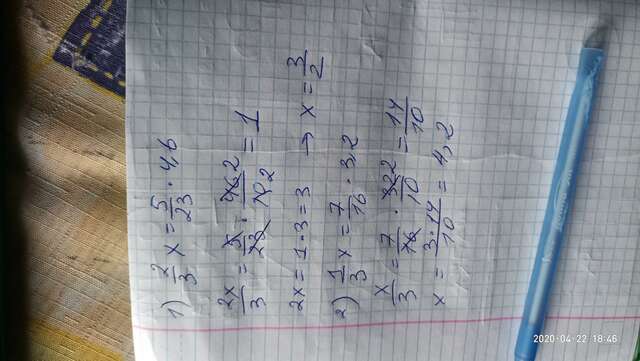 1) 2/3 x = 5/23 · 4,6
2x/3 = 5/23 · 46 2/10 2 = 1
2x = 1 · 3 = 3 → x = 3/2
2) 1/3 x = 7/16 · 3,2
x/3 = 7/16 · 32 2/10 = 14/10
x = 3 · 14/10 = 4,2
2020-04-22 18:46